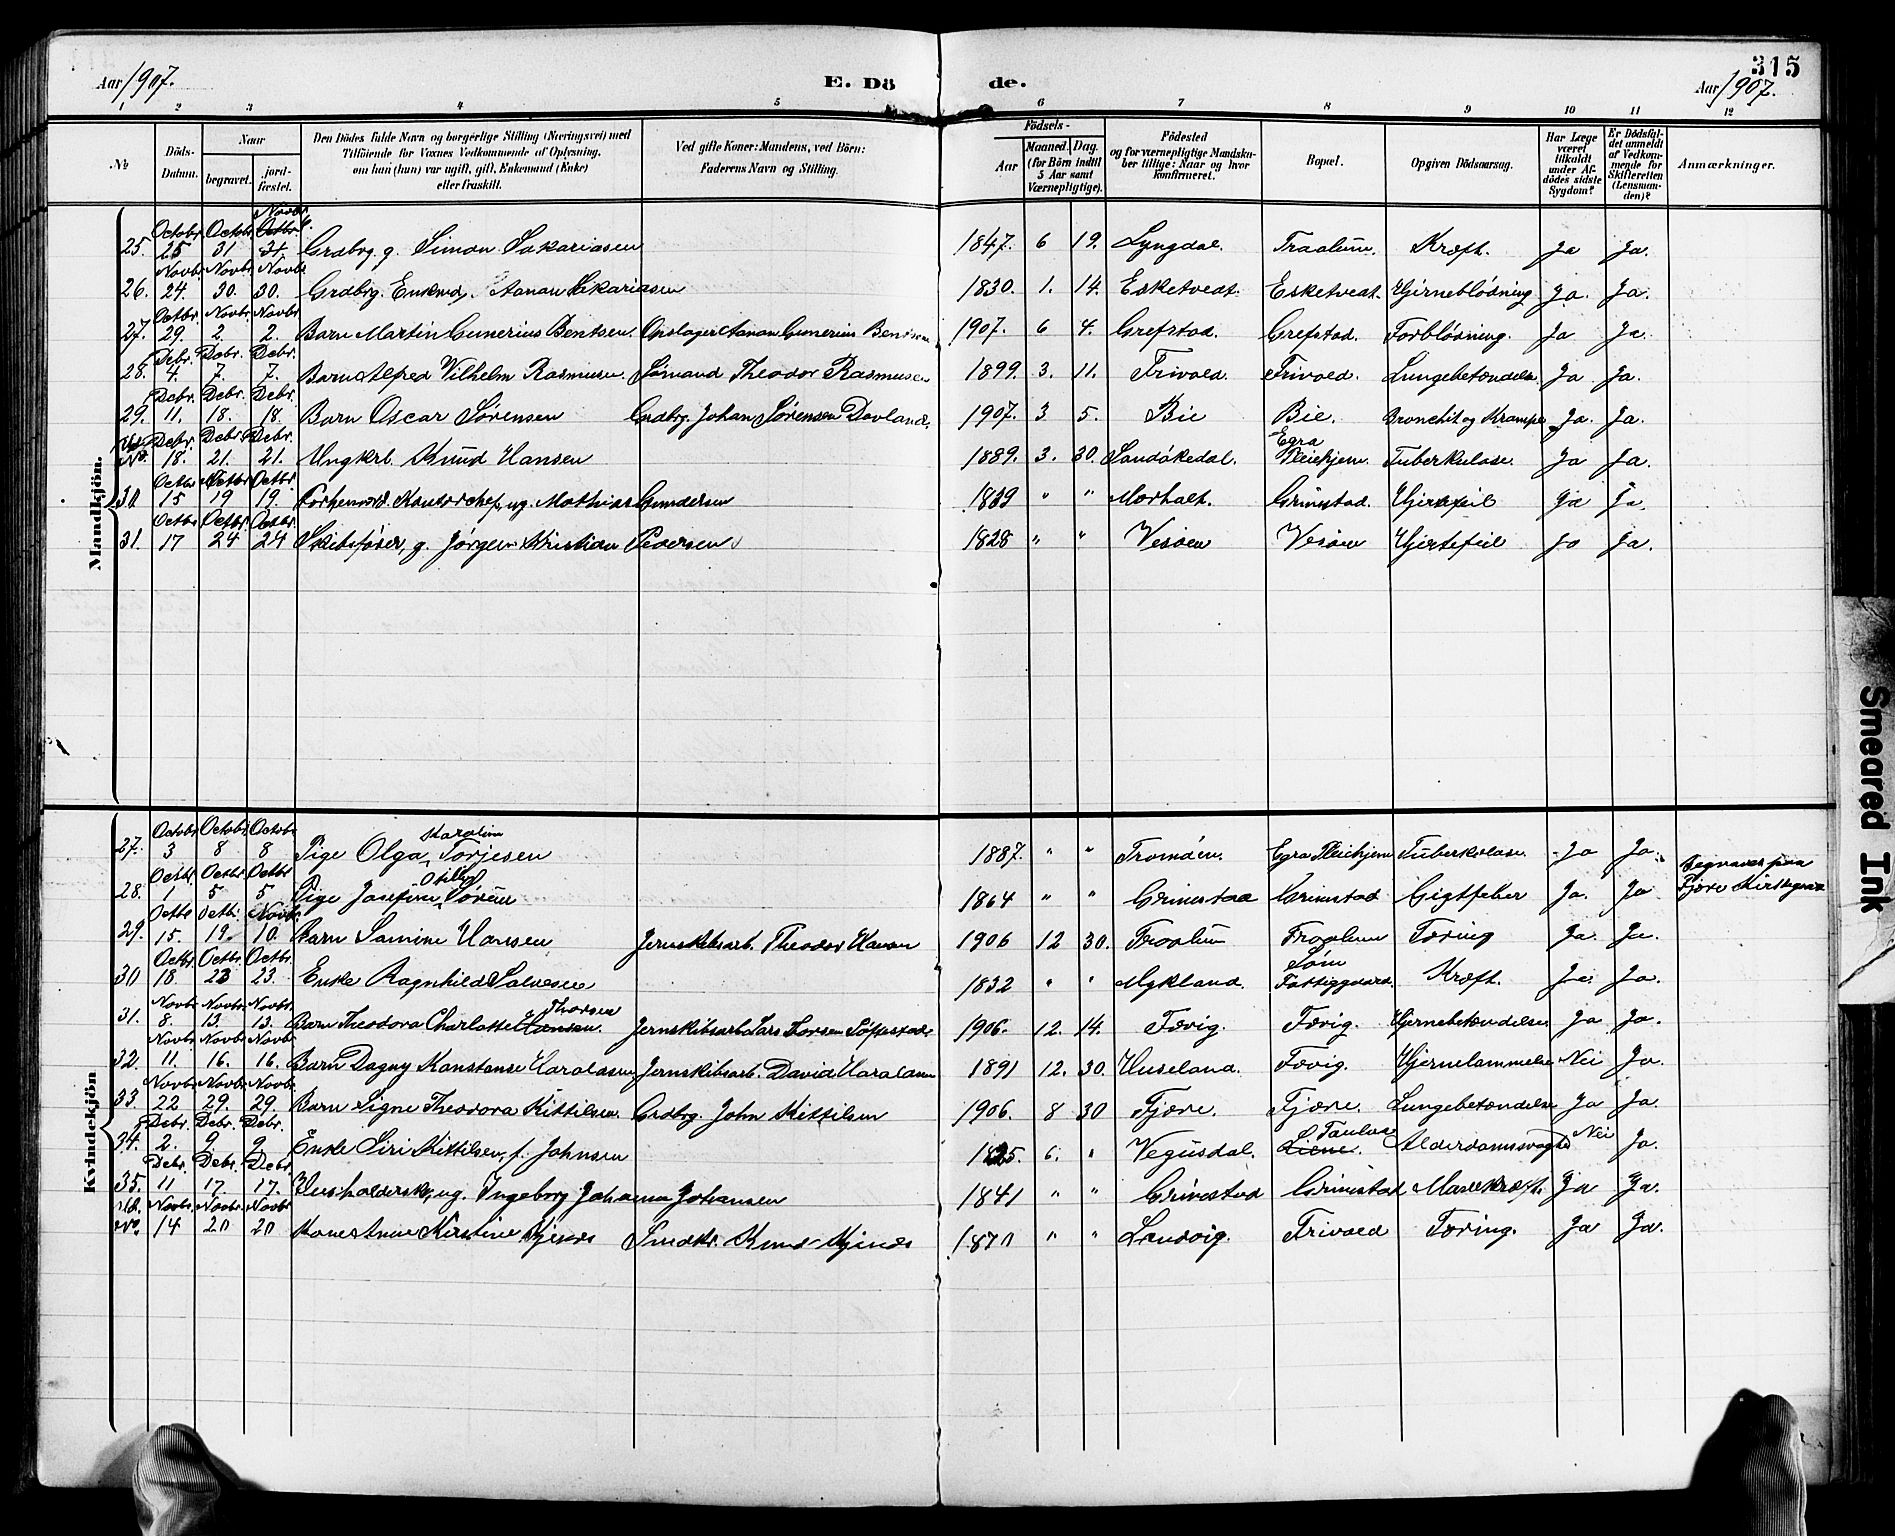 315
Aar 1907.
E. Dö
de.
Aar 1907.
1 2 3 4 5 6 7 8 9 10 11 12
No
Döds-Datum.
Naar
begravet.
jord-fæstet.
Den Dödes fulde Navn og borgerlige Stilling (Næringsvei) med
Tilföiende for Voxnes Vedkommende af Oplysning,
om han (hun) var ugift, gift, Enkemand (Enke)
eller fraskilt.
Ved gifte Koner: Mandens, ved Börn:
Faderens Navn og Stilling.
Födsels-
Aar
Maaned. Dag.
(for Börn indtil
5 Aar samt
Værnepligtige).
Födested
og for værnepligtige Mandska-
ber tillige: Naar og hvor
konfirmeret.
Bopæl.
Opgiven Dödsaarsag.
Har Læge
været
tilkaldt
under Af-
dödes sidste
Sygdom?
Er Dödsfal-
det anmeldt
af Vedkom-
mende for
Skifteretten
(Lensman-
den)?
Anmærkninger.
Mandkjön.
25. Octobr 25 Octobr 31 Novbr Grdbrg. g. Simon Sakariasen 1847. 6 19. Lyngdal. Traalum. Kræft. Ja Ja.
26. Novbr 24. Novbr. 30. Novbr 30. Grdbrg. Enkmd. Aanon Sakariasen 1830. 1. 14. Esketveat. Esketveat. Hjerneblödning Ja. Ja.
27. Octbr. 29. Novbr. 2. Novbr 2. Barn Martin Gunerius Bentsen. Opslager Aanon Gunerius Bentsen 1907. 6 4. Grefstad. Grefstad. Forblödning. Ja Ja.
28. Debr. 4. Debr. 7. Debr. 7. Barn Alfred Vilhelm Rasmusen. Sömand Theodor Rasmusen 1899. 3. 11. Frivold. Frivold. Lungebetændelse Ja Ja.
29. Debr. 11. Debr. 18. Debr. 18. Barn Oscar Sörensen Grdbrg. Johan Sörensen Dovland. 1907. 3 5. Bie Bie. Bronchit og Krampe Ja. Ja.
Ud. No. Debr. 18. Debr. 21. Debr. 21. Ungkrl. Knud Hansen 1889. 3. 30. Sandökedal. Egra Pleiehjem. Tuberkulose. Ja Ja.
30 Octbr 15 Octbr 19 Octbr 19. Forhenværd. Kontorchef, ug. Mathias Gundersen 1839 " " Morholt. Grimstad. Hjertefeil Ja Ja.
31. Octbr. 17 Octbr. 24 Octbr. 24 Skibsförer, g. Jörgen Kristian Pedersen 1828 " " Vesöen Vesöen Hjertefeil Ja Ja.
Kvindekjön
27. Octobr 3 Octobr. 8 Octobr 8 Pige Olga Karoline Torjesen 1887. " " Tromöen. Egra Pleiehjem Tuberkulose. Ja Ja.
28. Octbr. 1 Octbr 5 Octbr 5 Pige Josefine Otilie Sörum 1864 " " Grimstad Grimstad Gigtfeber Ja. Ja Begravet paa
Fjære Kirkegaard
29. Octbr 15. Octbr. 19. Novbr. 10. Barn Samine Hansen Jernskibsarb. Theodor Hansen 1906 12 30. Traalum Traalum Tæring Ja. Ja.
30 Octbr. 18 Octbr. 23 Octbr. 23. Enke Ragnhild Salvesen 1832 " " Mykland. Söm Fattiggaard. Kræft. Ja. Ja.
31. Novbr 8. Novbr. 13. Novbr. 13. Barn Theodora Charlotte Hansen. Thorsen Jernskibsarb. Lars Torsen Söftestad 1906. 12. 14. Fævig. Fævig. Hjernebetændelse Ja Ja.
32. Novbr. 11. Novbr. 16. Novbr 16. Barn Dagny Konstanse Haralsen, Jernskibsarb. David Haralsen 1891 12. 30. Huseland. Fævig. Hjernelammelse Nei Ja.
33. Novbr. 22 Novbr. 29. Novbr. 29. Barn Signe Theodora Kittilsen. Grdbrg. John Kittilsen 1906. 8 30 Fjære. Fjære. Lungebetændelse Ja Ja.
34. Debr. 2. Debr. 9 Debr. 9. Enke Siri Kittilsen, f. Johnsen 1825. 6. " Vegusdal. Alderdomssvaghed Nei Ja.
35. Debr. 11 Debr. 17 Debr 17. Husholderske, ug. Ingeborg Johanne Johansen 1841 " " Grimstad Grimstad Mavekræft. Ja Ja.
Ud. No. Novbr. 14 Novbr. 20 Novbr. 20 Kone Anne Kirstine Kjenes Smedkr. Knud Kjenes 1870 " " Landvig. Frivold Tæring. Ja Ja.
Smeared Ink